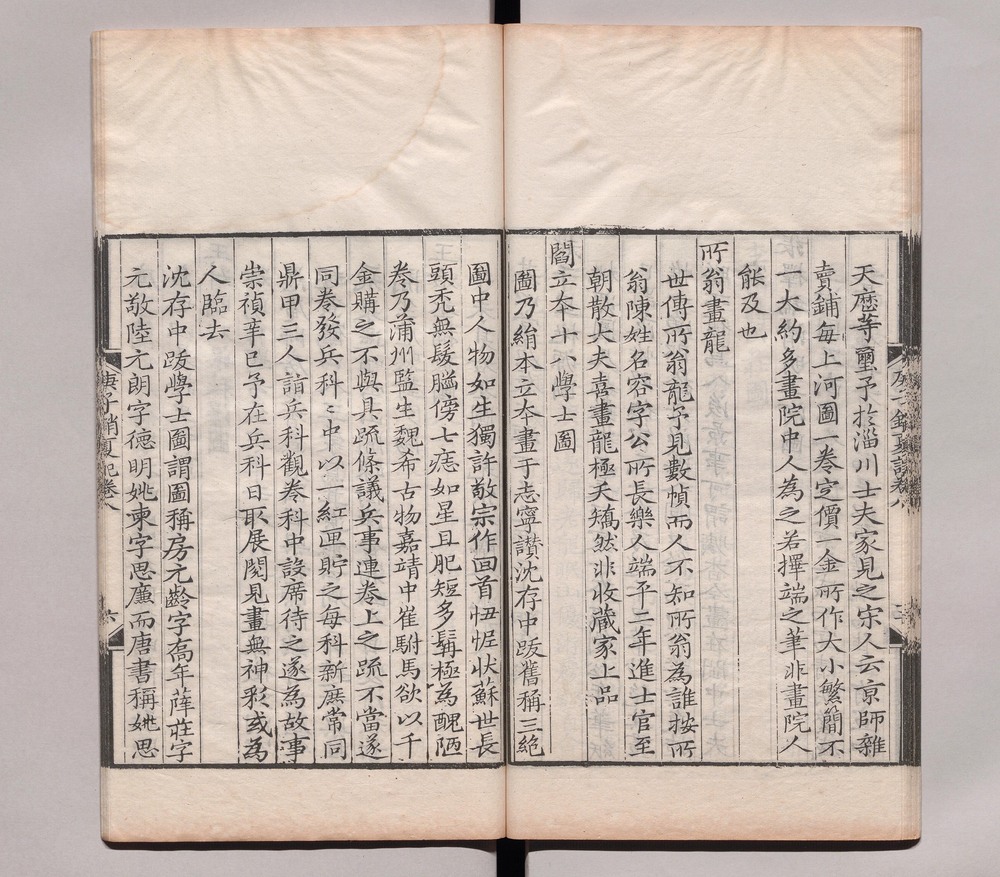 天曆等璽予於淄川士夫家見之宋人云京師雜
賣鋪每上河圖一卷定價一金所作大小繁簡不
一大約多畫院中人為之若擇端之筆非畫院人
能及也
所翁畫龍
世傳所翁龍予見數幀而人不知所翁為誰按所
翁陳姓名容字公所長樂人端平二年進士官至
朝散大夫喜畫龍極夭矯然非收藏家上品
閻立本十八學士圖
圖乃絹本立本畫于志寧讚沈存中跋舊稱三絕
圖中人物如生獨許敬宗作回首忸怩狀蘇世長
頭禿無髮腦傍七痣如星且肥短多髯極為醜陋
卷乃蒲州監生魏希古物嘉靖中崔駙馬欲以千
金購之不與具疏條議兵事連卷上之疏不當遂
同卷發兵科〻中以一紅匣貯之每科新庶常同
鼎甲三人詣兵科觀卷科中設席待之遂為故事
崇禎辛巳予在兵科日取展閱見畫無神彩或為
人臨去
沈存中跋學士圖謂圖稱房元齡字喬年薛莊字
元敬陸元朗字德明姚柬字思廉而唐書稱姚思
庚子銷夏記卷八
六